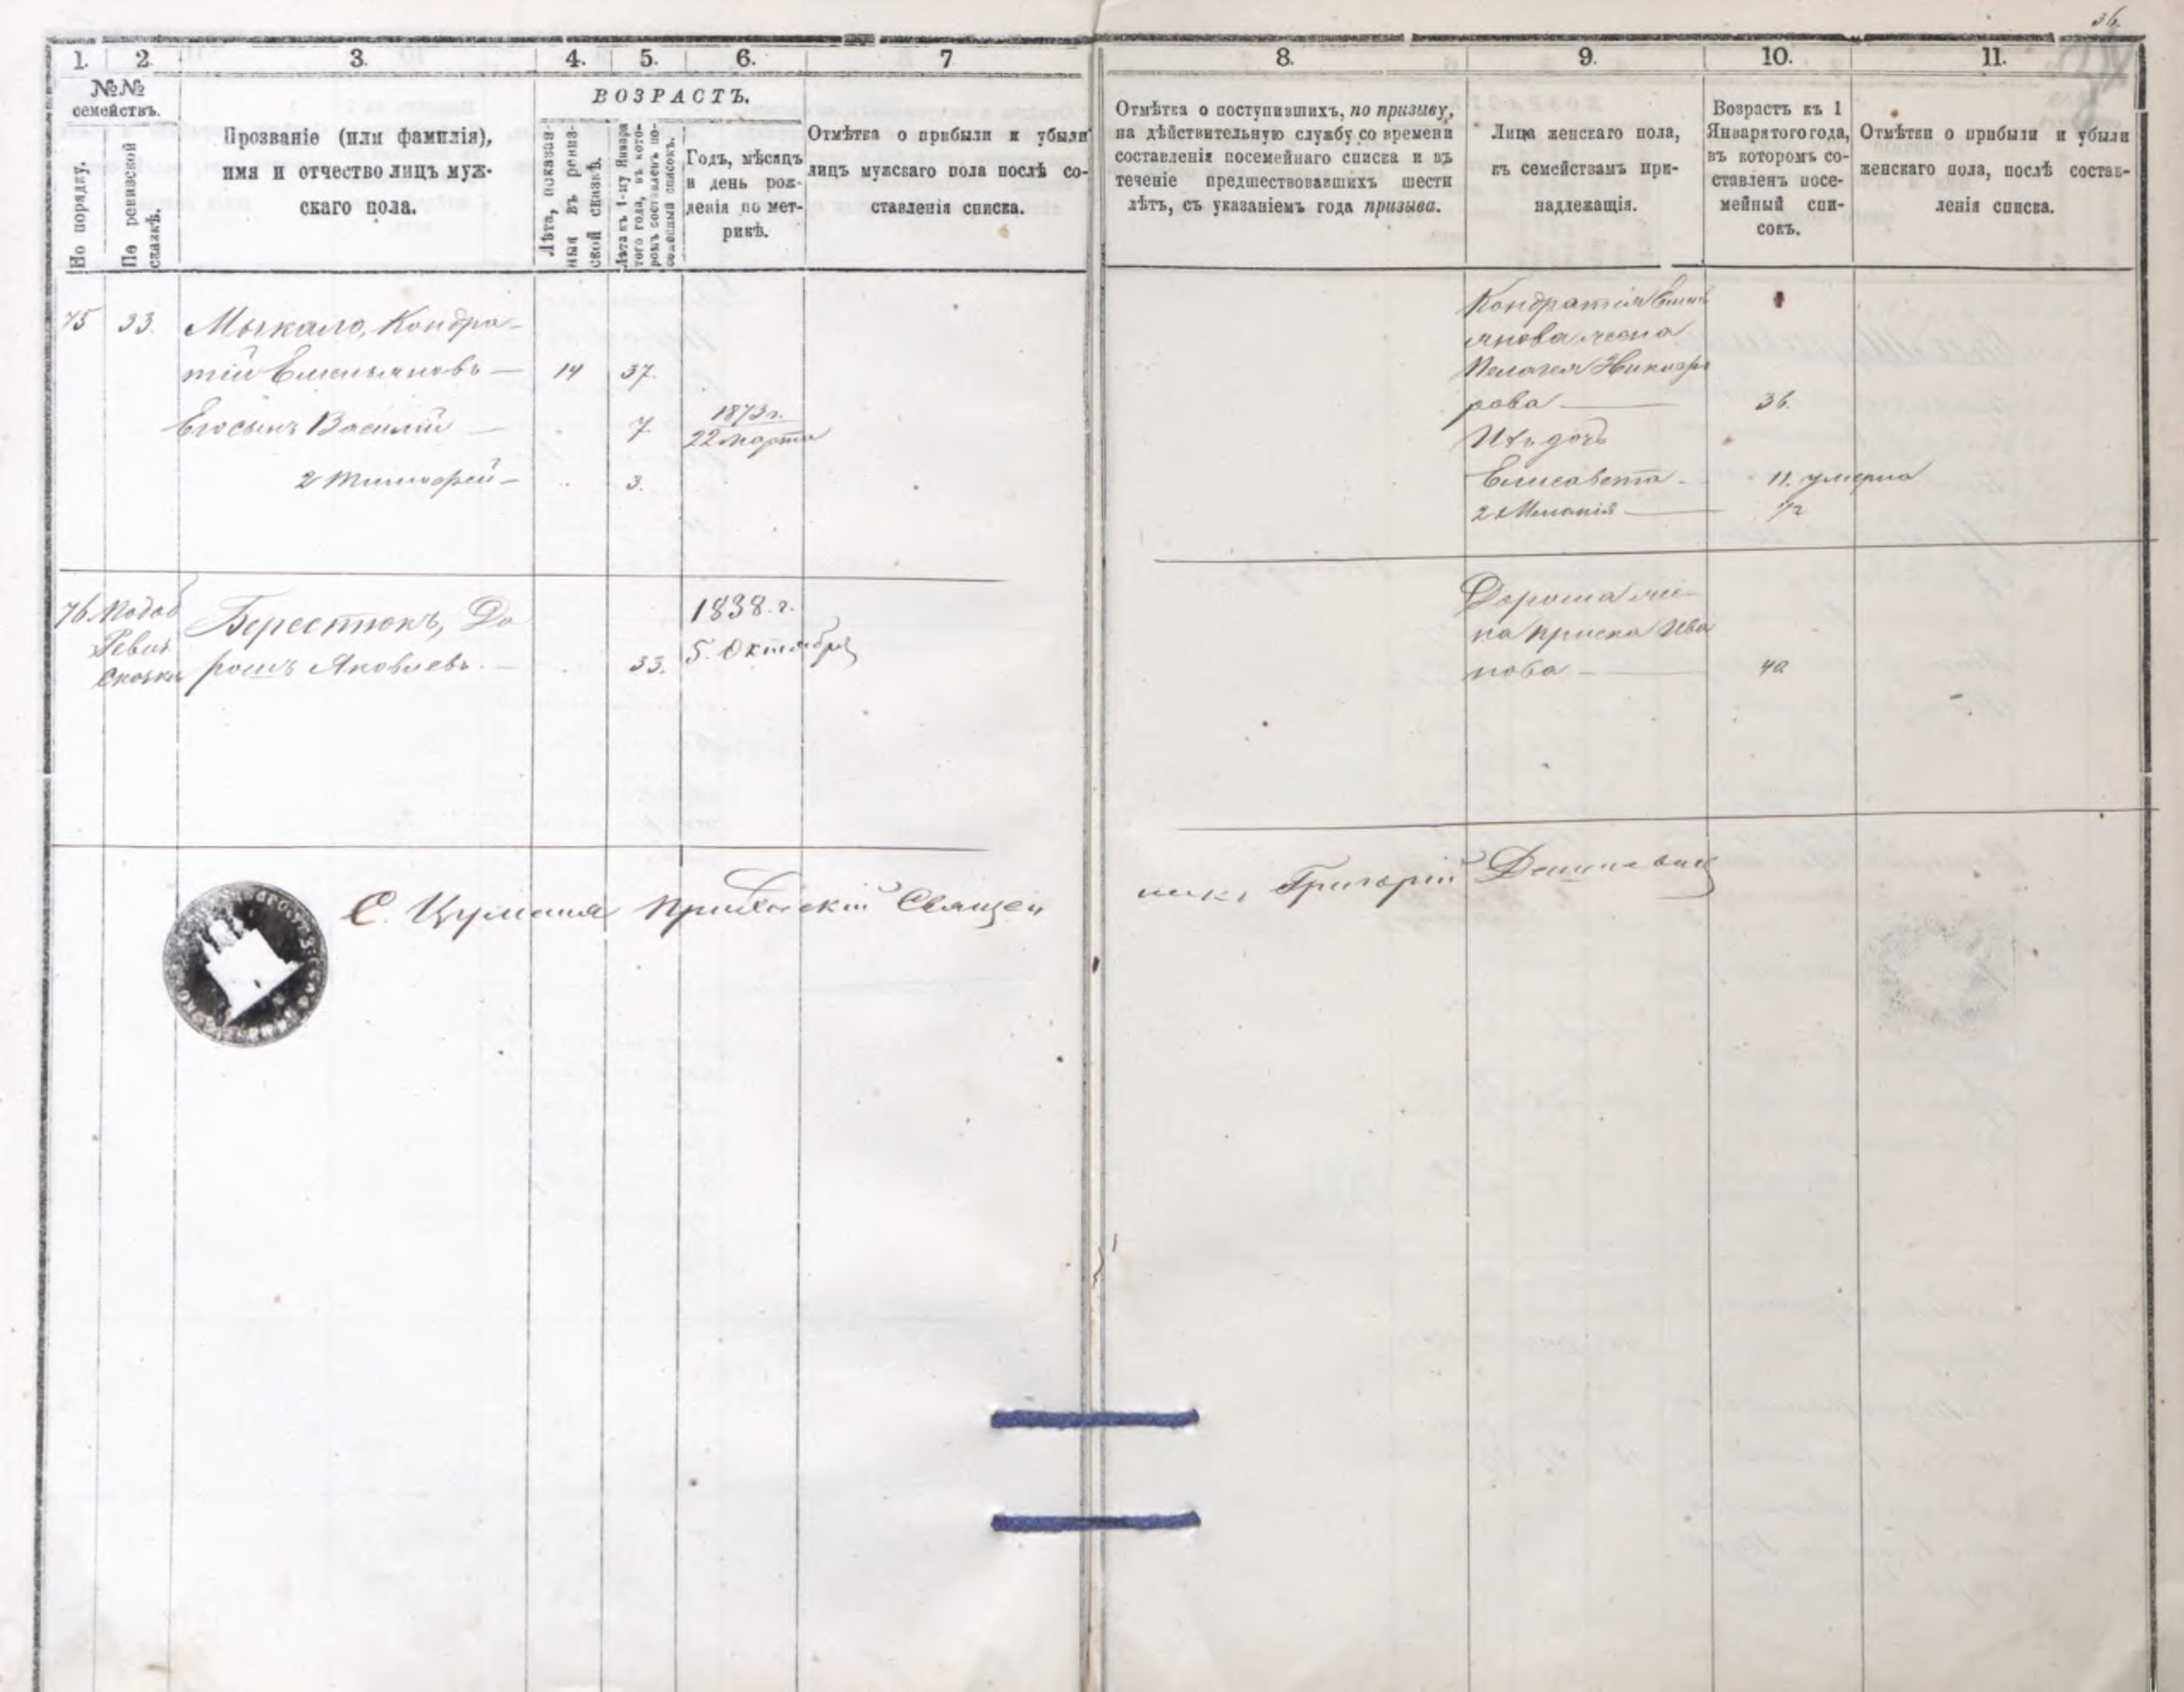 36.
1. 2. 3. 4. 5. 6. 7 8. 9. 10. 11.
№№
семействъ.
По порядку.
По ревизской
сказкѣ.
Прозваніе (или фамилія),
имя и отчество лицъ муж-
скаго пола.
ВОЗРАСТЪ.
Лѣта, показан-
ныя въ ревиз-
ской сказкѣ.
Лѣта къ 1-му Января
того года, въ кото-
ромъ составленъ по-
семейный списокъ.
Годъ, мѣсяцъ
и день рож-
денія по мет-
рикѣ.
Отмѣтка о прибыли и убыли
лицъ мужскаго пола послѣ со-
ставленія списка.
Отмѣтка о поступившихъ, по призыву,
на дѣйствительную службу со времени
составленія посемейнаго списка и въ
теченіе предшествовавшихъ шести
лѣтъ, съ указаніемъ года призыва.
Лица женскаго пола,
къ семействамъ при-
надлежащія.
Возрастъ къ 1
Января того года,
въ которомъ со-
ставленъ посе-
мейный спи-
сокъ.
Отмѣтки о прибыли и убыли
женскаго пола, послѣ состав-
ленія списка.
75 33. Мыкало, Кондра-
тій Емельяновъ — 14 37.
Его сынъ Василій — 7. 1873 г.
22 марта
2 Тимофей — 3.
Кондратія Емель
янова жена
Пелагея Никифо
рова — 36.
Ихъ дочь
Елисавета — 11. умерла
2 Меланія — 1/2
76 По доб
Ревиз
Сказки
Берестюкъ, До
рошъ Яковлевъ. — 33.
1838. г.
5. Октября
Дороша же-
на Приска Ива
нова — 40
С. Цумана Приходскій Священ
никъ Григорій